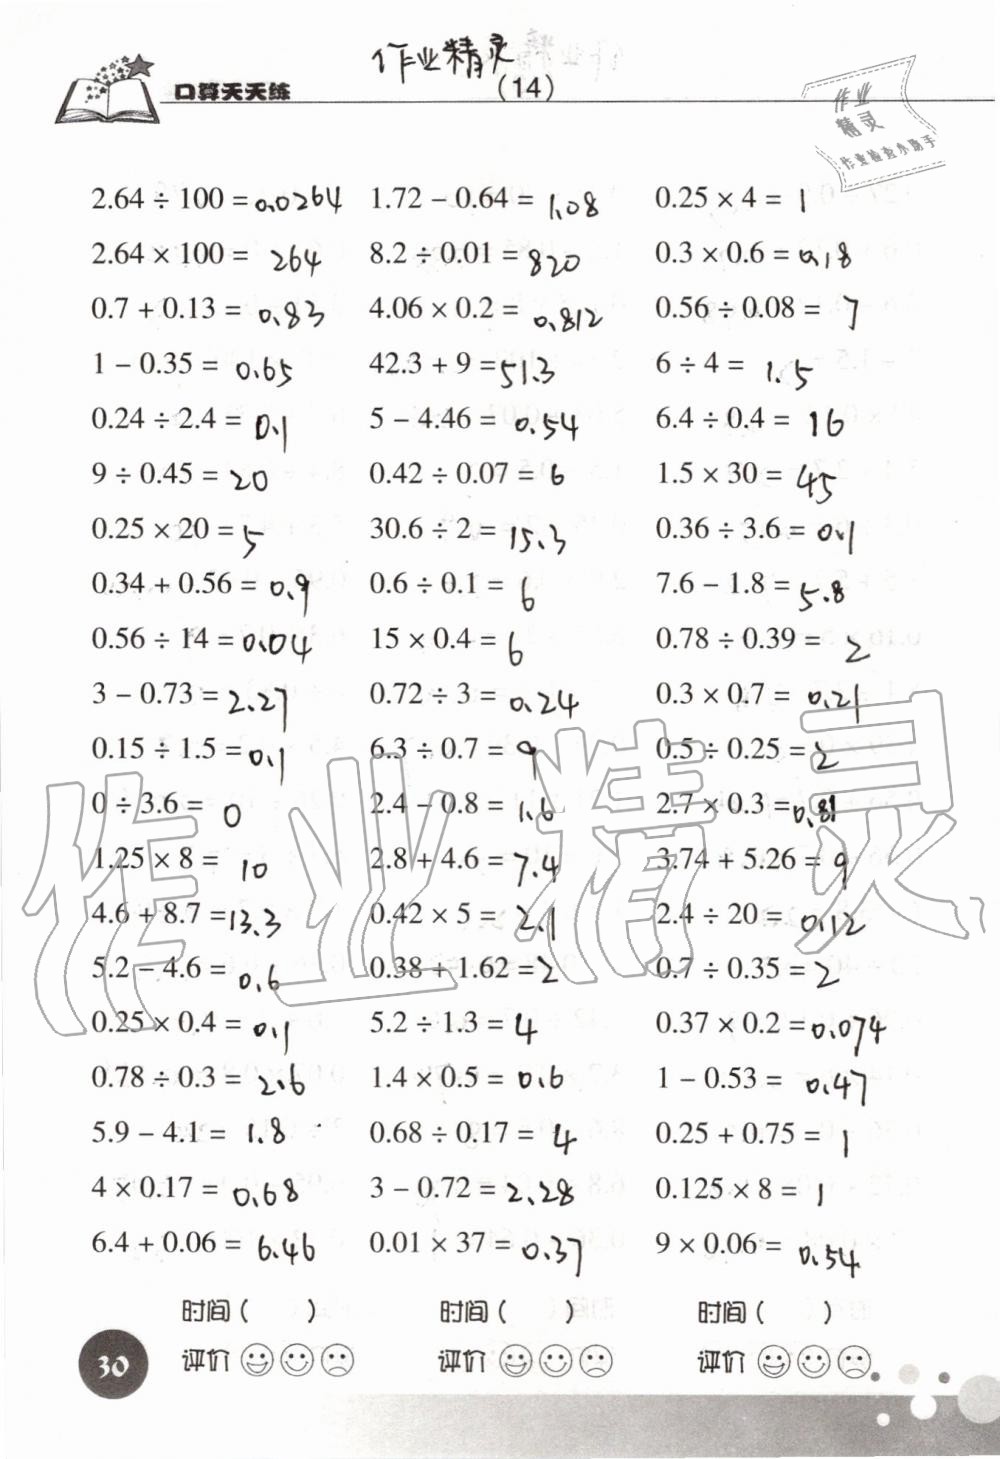 作业精灵
口算天天练
(14)
作业
精灵
作业检查小助手
2.64 ÷ 100 = 0.0264 1.72 − 0.64 = 1.08 0.25 × 4 = 1
2.64 × 100 = 264 8.2 ÷ 0.01 = 820 0.3 × 0.6 = 0.18
0.7 + 0.13 = 0.83 4.06 × 0.2 = 0.812 0.56 ÷ 0.08 = 7
1 − 0.35 = 0.65 42.3 + 9 = 51.3 6 ÷ 4 = 1.5
0.24 ÷ 2.4 = 0.1 5 − 4.46 = 0.54 6.4 ÷ 0.4 = 16
9 ÷ 0.45 = 20 0.42 ÷ 0.07 = 6 1.5 × 30 = 45
0.25 × 20 = 5 30.6 ÷ 2 = 15.3 0.36 ÷ 3.6 = 0.1
0.34 + 0.56 = 0.9 0.6 ÷ 0.1 = 6 7.6 − 1.8 = 5.8
0.56 ÷ 14 = 0.04 15 × 0.4 = 6 0.78 ÷ 0.39 = 2
3 − 0.73 = 2.27 0.72 ÷ 3 = 0.24 0.3 × 0.7 = 0.21
0.15 ÷ 1.5 = 0.1 6.3 ÷ 0.7 = 9 0.5 ÷ 0.25 = 2
0 ÷ 3.6 = 0 2.4 − 0.8 = 1.6 2.7 × 0.3 = 0.81
1.25 × 8 = 10 2.8 + 4.6 = 7.4 3.74 + 5.26 = 9
4.6 + 8.7 = 13.3 0.42 × 5 = 2.1 2.4 ÷ 20 = 0.12
5.2 − 4.6 = 0.6 0.38 + 1.62 = 2 0.7 ÷ 0.35 = 2
0.25 × 0.4 = 0.1 5.2 ÷ 1.3 = 4 0.37 × 0.2 = 0.074
0.78 ÷ 0.3 = 2.6 1.4 × 0.5 = 0.6 1 − 0.53 = 0.47
5.9 − 4.1 = 1.8 0.68 ÷ 0.17 = 4 0.25 + 0.75 = 1
4 × 0.17 = 0.68 3 − 0.72 = 2.28 0.125 × 8 = 1
6.4 + 0.06 = 6.46 0.01 × 37 = 0.37 9 × 0.06 = 0.54
作业精灵
时间( ) 时间( ) 时间( )
评价 评价 评价
30